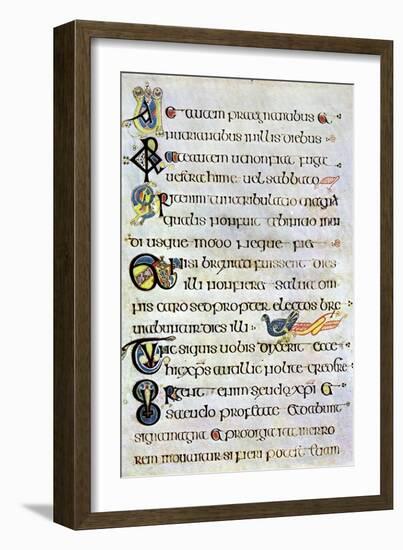 Uae autem praegnantibus et
nutrientibus in illis diebus
Orate autem ut non fiat fuga
uestra hieme uel sabbato
Erit enim tunc tribulatio magna
qualis non fuit ab initio mun
di usque modo neque fiet
Et nisi breuiati fuissent dies
illi non fieret salua om
nis caro sed propter electos bre
uiabuntur dies illi
Tunc si quis uobis dixerit ecce
hic xps aut illic nolite credere
Surgent enim seudo xpi et
seudo profetae et dabunt
signa magna et prodigia ita ut in erro
rem moueantur si fieri potest etiam